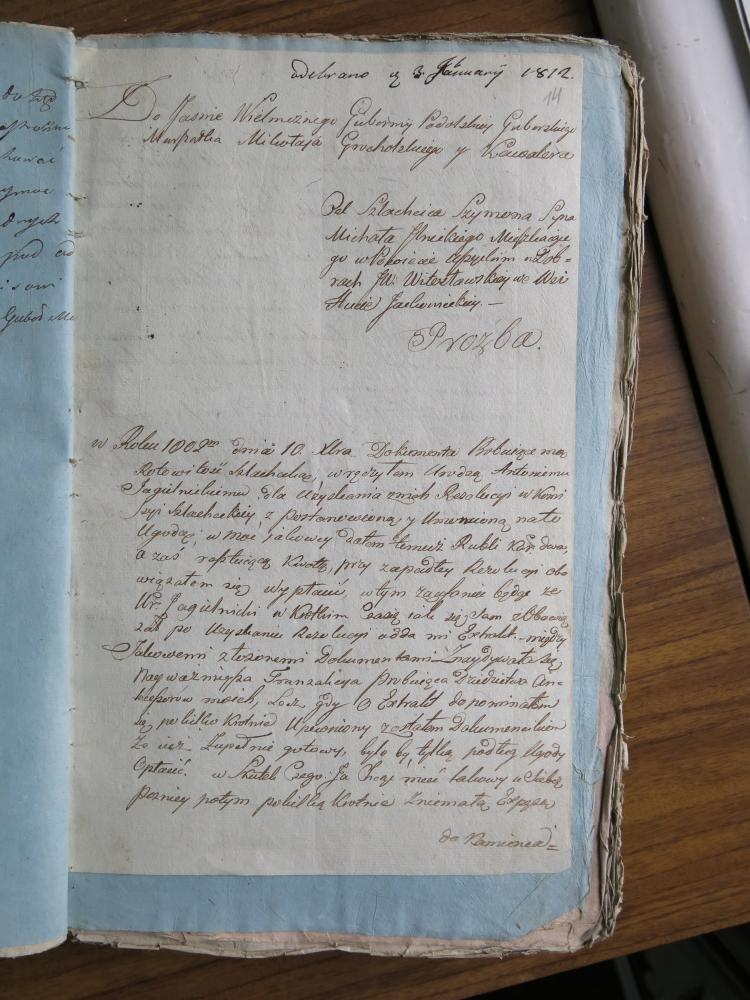 do
Gubor: Ma
odebrano d 3 January 1812.
14
Do Jasnie Wielmożnego Guberny Podolskiey Guberskiego
Marszałka Mikołaja Grocholskiego y Kawalera
Od Szlachcica Szymona Syna
Michała Mieszkaiące
go w Powiecie w Dob=
rach JW. Witosławskiey we Wsi
Hucie
Prozba.
w Roku 1802m dnia 10. Xbra Dokumenta Probuiące mą
Rotowitość Szlachecką, wręczyłem Urodzą Antoniemu
Jagielnickiemu dla Uzyskania z nich Rezolucyi w Komi
syi Szlacheckiey z postanowioną y Umowioną na to
Ugodą, w moc jakowey dałem temuż Rubli dwa,
a zaś resztuiącą Kwotę, przy zapadłey Rezolucyi obo
wiązałem się wypłacić, w tym zaufaniu będąc że
Ur. Jagielnicki w krotkim Czasie iak się Sam
zał po Uzyskaniu Rezolucyi odda mi Extrakt. między
Jakowemi złożonemi Dokumentami Znaydywała się
Nayważnieysza Tranzakcya probuiąca Dziedzictwo An=
tecessorów moich, Lecz gdy o Extrakt dopominałem
się, po kilko Krotnie Upewniony zostałem Dokumencikiem
że iest Zupełnie gotowy, było by tylko podług Ugody
Opłacić. w Skutek Czego Ja Chcąc mieć takowy u Siebie
pozniey potym po kilka Krotnie Expęsą
do Kamienca=